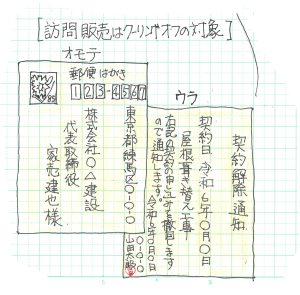 [訪問販売はクーリングオフの対象]
オモテ
郵便はがき
123-4567
東京都練馬区0-0-0
株式会社○△建設
代表取締役
家売建也様
ウラ
契約解除通知
契約日 令和6年0月0日
屋根葺き替え工事
右記の契約の申し込みを撤回します
ので通知します。
令和6年0月0日
0-0-0
山田太郎